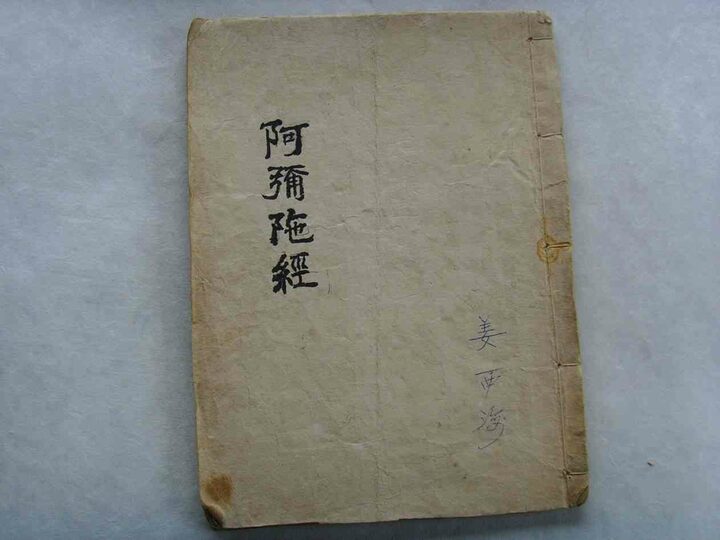 阿彌陁經
姜西海